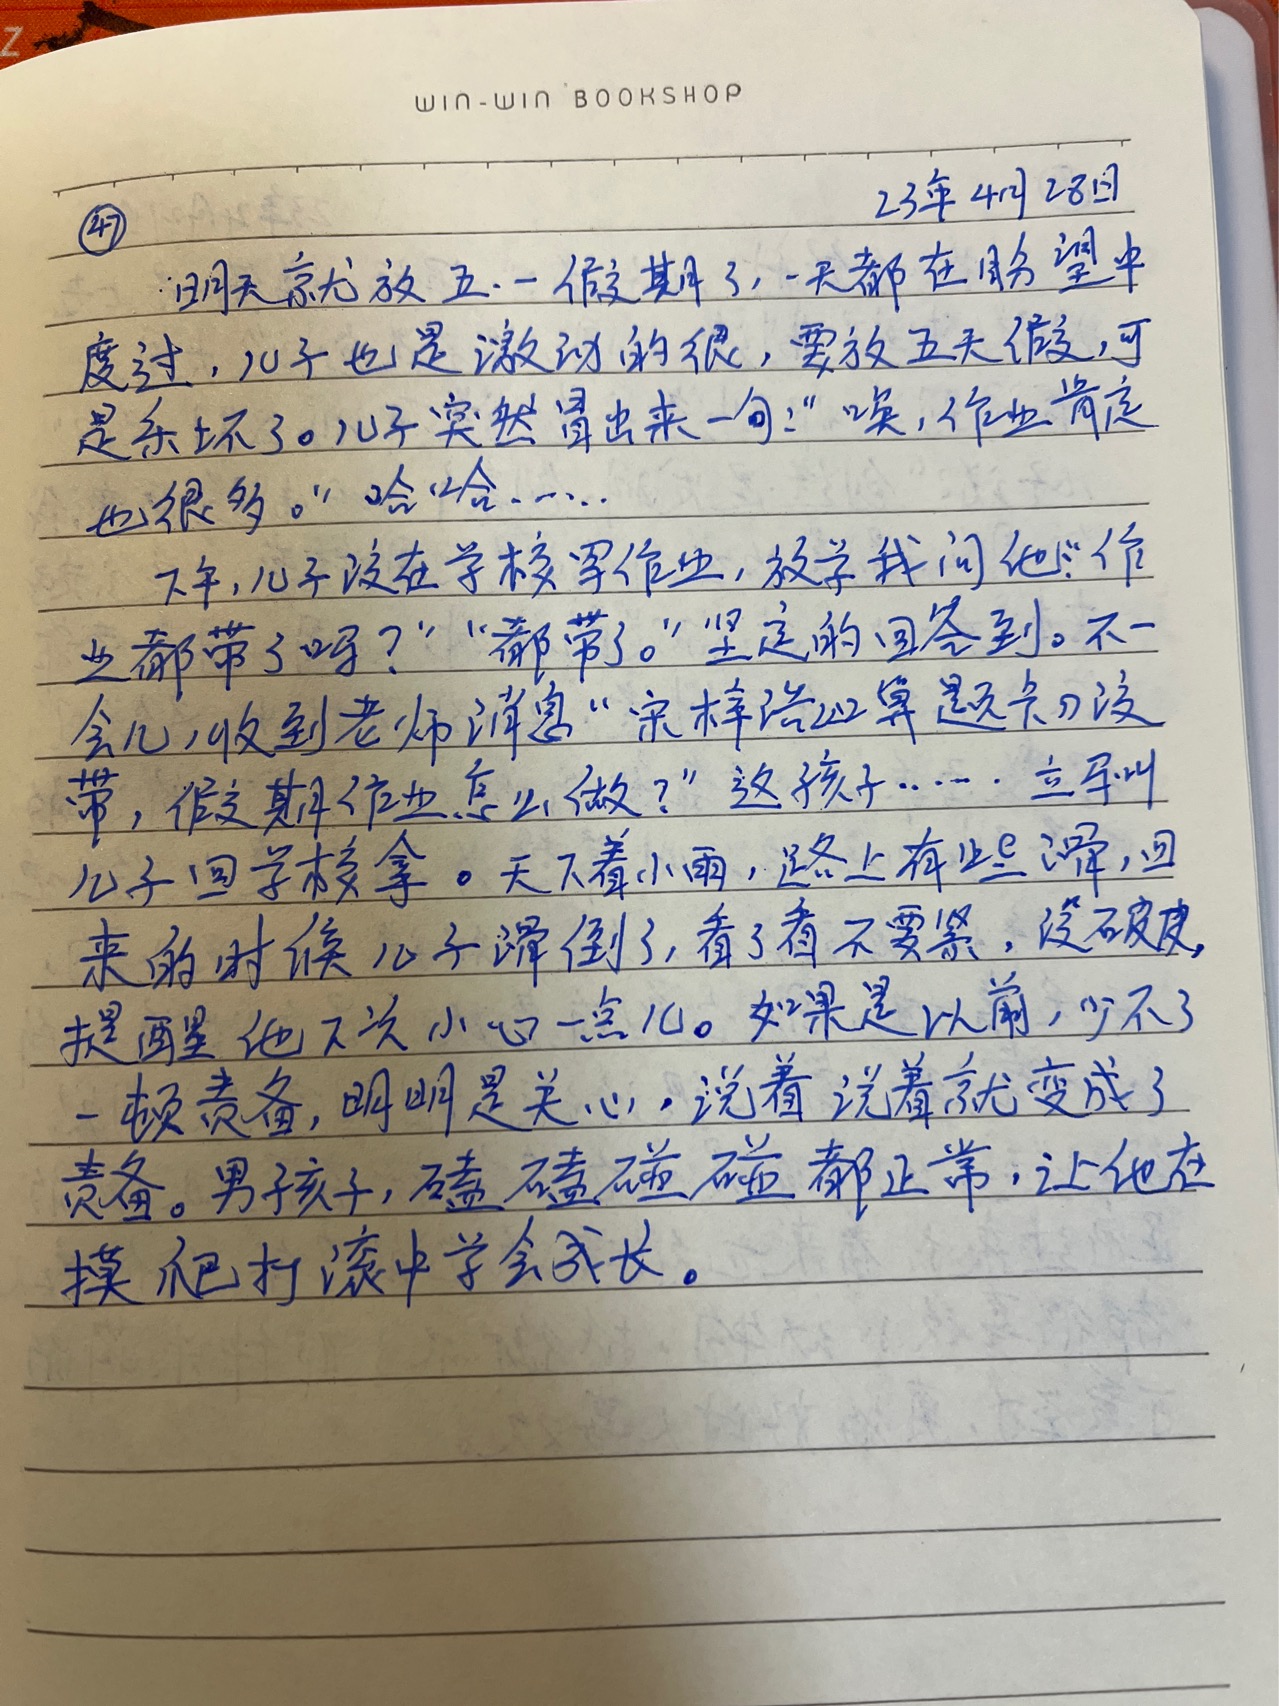 WIN-WIN BOOKSHOP
㊼ 23年4月28日
明天就放五.一假期了,一天都在盼望中
度过,儿子也是激动的很,要放五天假,可
是乐坏了。儿子突然冒出来一句:“唉,作业肯定
也很多。”哈哈……
下午,儿子没在学校写作业,放学我问他:“作
业都带了吗?”“都带了。”坚定的回答到。不一
会儿,收到老师消息“宋梓浩 算题卡 没
带,假期作业怎么做?”这孩子…… 立马叫
儿子回学校拿。天下着小雨,路上有些滑,回
来的时候儿子滑倒了,看了看不要紧,没破皮,
提醒他下次小心一点儿。如果是以前,少不了
一顿责备,明明是关心,说着说着就变成了
责备。男孩子,磕磕碰碰都正常,让他在
摸爬打滚中学会成长。